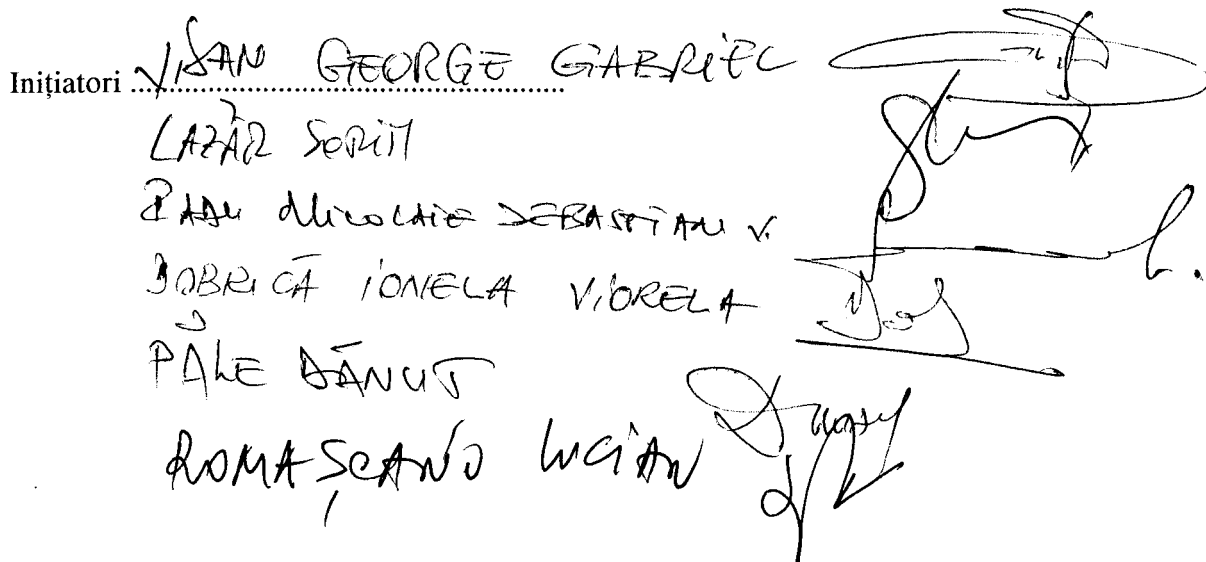 Inițiatori VIȘAN GEORGE GABRIEL
LAZĂR SORIN
RADU NICOLAIE SEBASTIAN V.
DOBRICĂ IONELA VIORELA
PĂLE DĂNUȚ
ROMAȘCANU LUCIAN